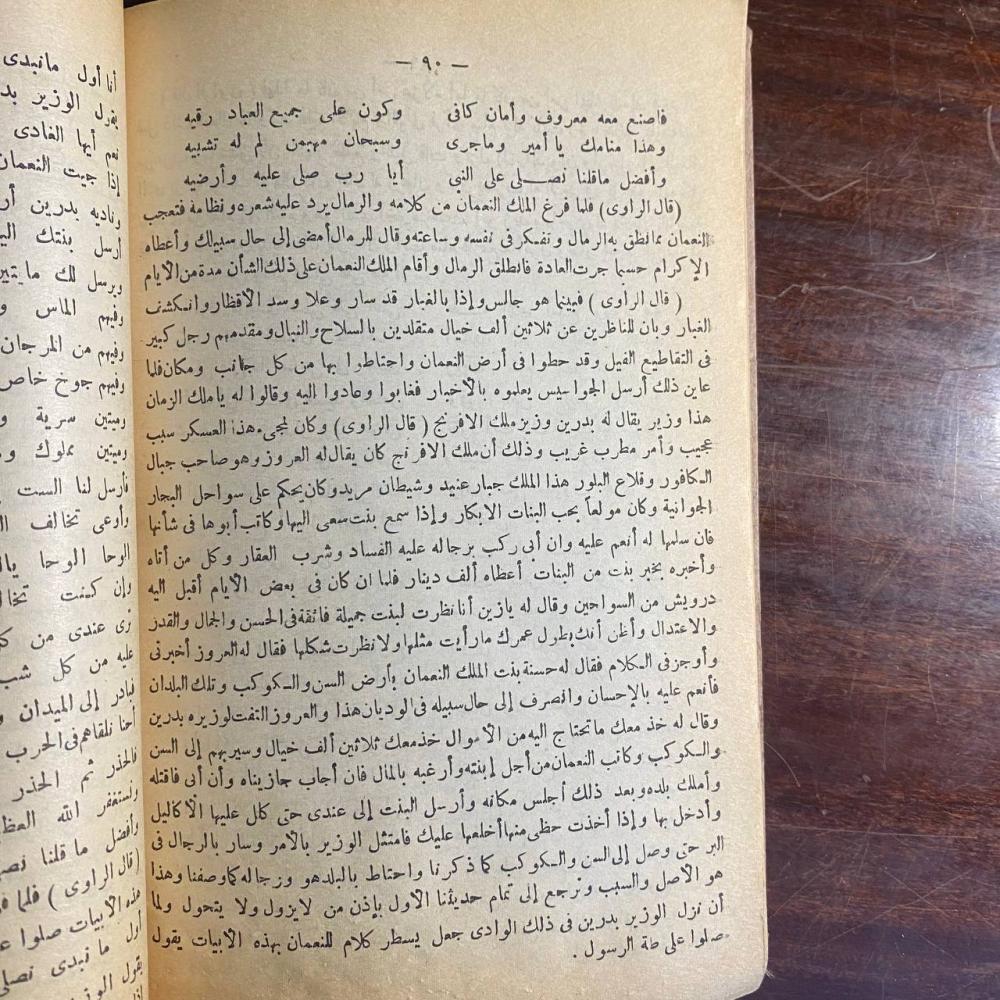 — ٩٠ —
فاصنع معه معروف وأمان كافى وكون على جميع العباد رقيه
وهذا منامك يا أمير وماجرى وسبحان مهيمن لم له تشبيه
وأفضل ماقلنا نصلى على النبي أيا رب صلى عليه وأرضيه
(قال الراوى) فلما فرغ الملك النعمان من كلامه والرمال يرد عليه شعره ونظامه فتعجب
النعمان مما نطق به الرمال وتفكر فى نفسه وساعته وقال للرمال أمضى إلى حال سبيلك وأعطاه
الإكرام حسبما جرت العادة فانطلق الرمال وأقام الملك النعمان على ذلك الشأن مدة من الأيام
( قال الراوى ) فبينما هو جالس وإذا بالغبار قد سار وعلا وسد الأقطار وانكشف
الغبار وبان للناظرين عن ثلاثين ألف خيال متقلدين بالسلاح والنبال ومقدمهم رجل كبير
فى التقاطيع الفيل وقد حطوا فى أرض النعمان واحتاطوا بها من كل جانب ومكان فلما
عاين ذلك أرسل الجواسيس يعلموه بالأخبار فغابوا وعادوا اليه وقالوا له ياملك الزمان
هذا وزير يقال له بدرين وزيز ملك الافرنج ( قال الراوى ) وكان لمجىء هذا العسكر سبب
عجيب وأمر مطرب غريب وذلك أن ملك الافرنج كان يقال له العروز وهو صاحب جبال
الكافور وقلاع البلور هذا الملك جبار عنيد وشيطان مريد وكان يحكم على سواحل البحار
الجوانية وكان مولعاً بحب البنات الابكار وإذا سمع بنت سعى اليها وكاتب أبوها فى شأنها
فان سلمها له أنعم عليه وان أبى ركب برجاله عليه الفساد وشرب العقار وكل من أتاه
وأخبره بخبر بنت من البنات أعطاه ألف دينار فلما ان كان فى بعض الأيام أقبل اليه
درويش من السواحين وقال له يازين أنا نظرت لبنت جميلة فائقة فى الحسن والجمال والقدز
والاعتدال وأظن أنك بطول عمرك مارأيت مثلها ولا نظرت شكلها فقال له العروز أخبرنى
وأوجز فى الكلام فقال له حسنة بنت الملك النعمان بأرض السن والكوكب وتلك البلدان
فأنعم عليه بالإحسان وانصرف إلى حال سبيله فى الوديان هذا والعروز التفت لوزيره بدرين
وقال له خذ معك ماتحتاج اليه من الأموال خذ معك ثلاثين ألف خيال وسير بهم إلى السن
والكوكب وكاتب النعمان من أجل إبنته وأرغبه بالمال فان أجاب جازيناه وأن أبى فاقتله
وأملك بلده وبعد ذلك أجلس مكانه وأرسل البنت إلى عندى حتى كال عليها الأكاليل
وأدخل بها وإذا أخذت حظى منها أخلعها عليك فامتثل الوزير بالأمر وسار بالرجال فى
البر حتى وصل إلى السن والكوكب كما ذكرنا واحتاط بالبلد هو ورجاله كما وصفنا وهذا
هو الأصل والسبب ونرجع إلى تمام حديثنا الأول بإذن من لايزول ولا يتحول ولما
أن نزل الوزير بدرين فى ذلك الوادى جعل يسطر كلام للنعمان بهذه الأبيات يقول
صلوا على طة الرسول .
أنا أول مانبدى
يقول الوزير
نعم أيها الغادى
إذا جيت النعمان
وناديه بدرين
أرسل بنتك
ويرسل لك
وفيهم الماس
وفيهم من المرجان
وفيهم جوخ خاص
وميتين سرية
وميتين مملوك
فأرسل لنا الست
وأوعى تخالف
الوحا الوحا
وإن كنت
ترى عندى من
عليه من كل
فبادر إلى الميدان
أحنا نلقاهم فى الحرب
فالحذر ثم الحذر
ونستغفر الله
وأفضل ما قلنا
(قال الراوى) فلما
هذه الأبيات صلوا
أول ما نبدى نصلى
يقول